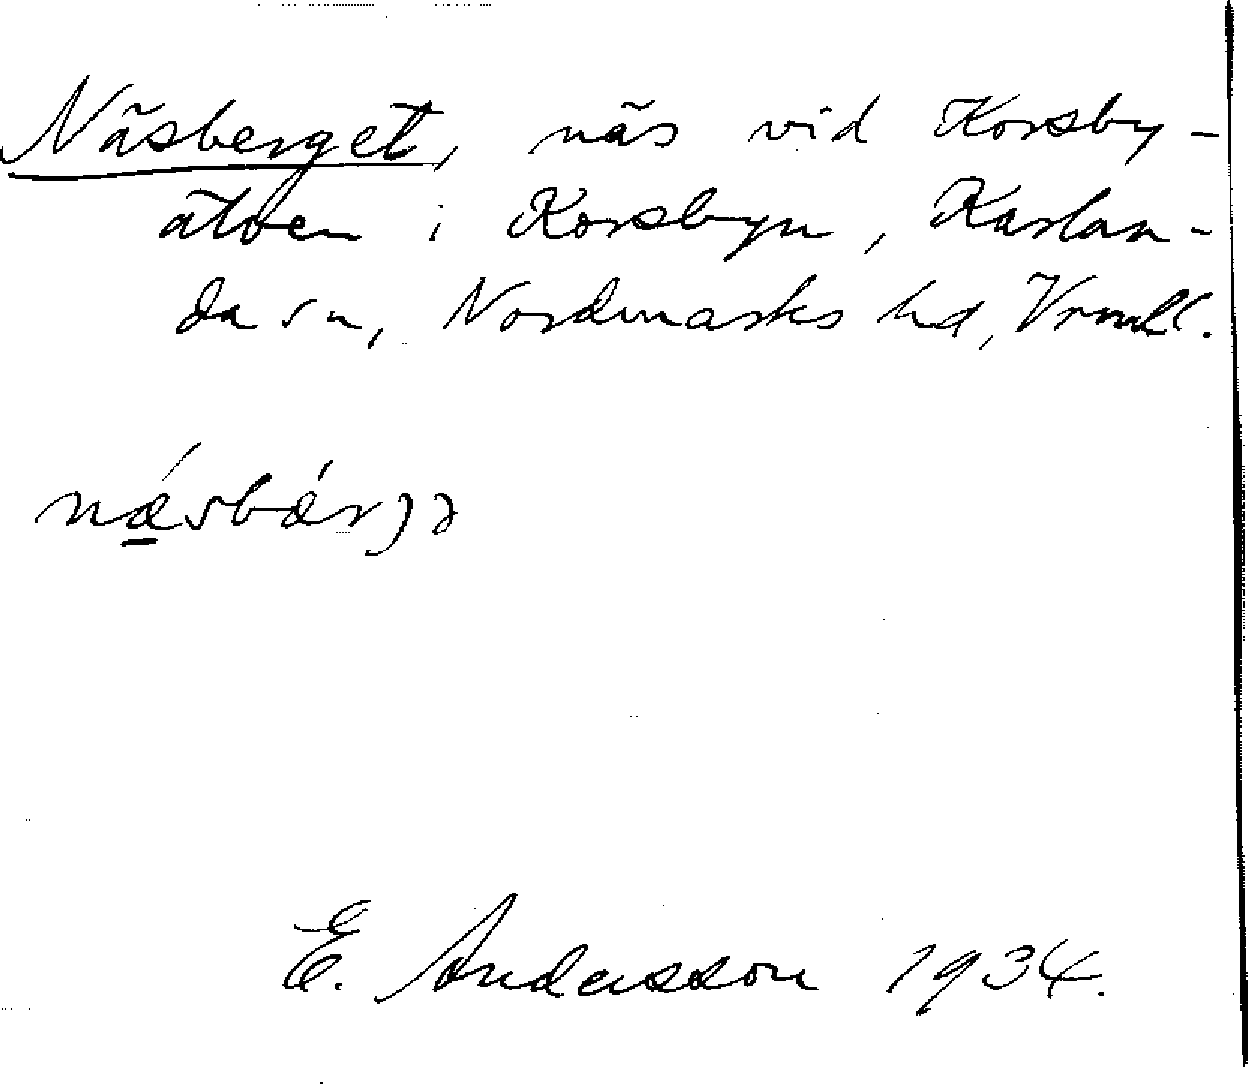 Näsberget, näs vid Korsby-
älven i Korsbyn, Karlan-
da sn, Nordmarks hd, Vrml.
nǽ̲sbǽrjə
E. Andersson 1934.